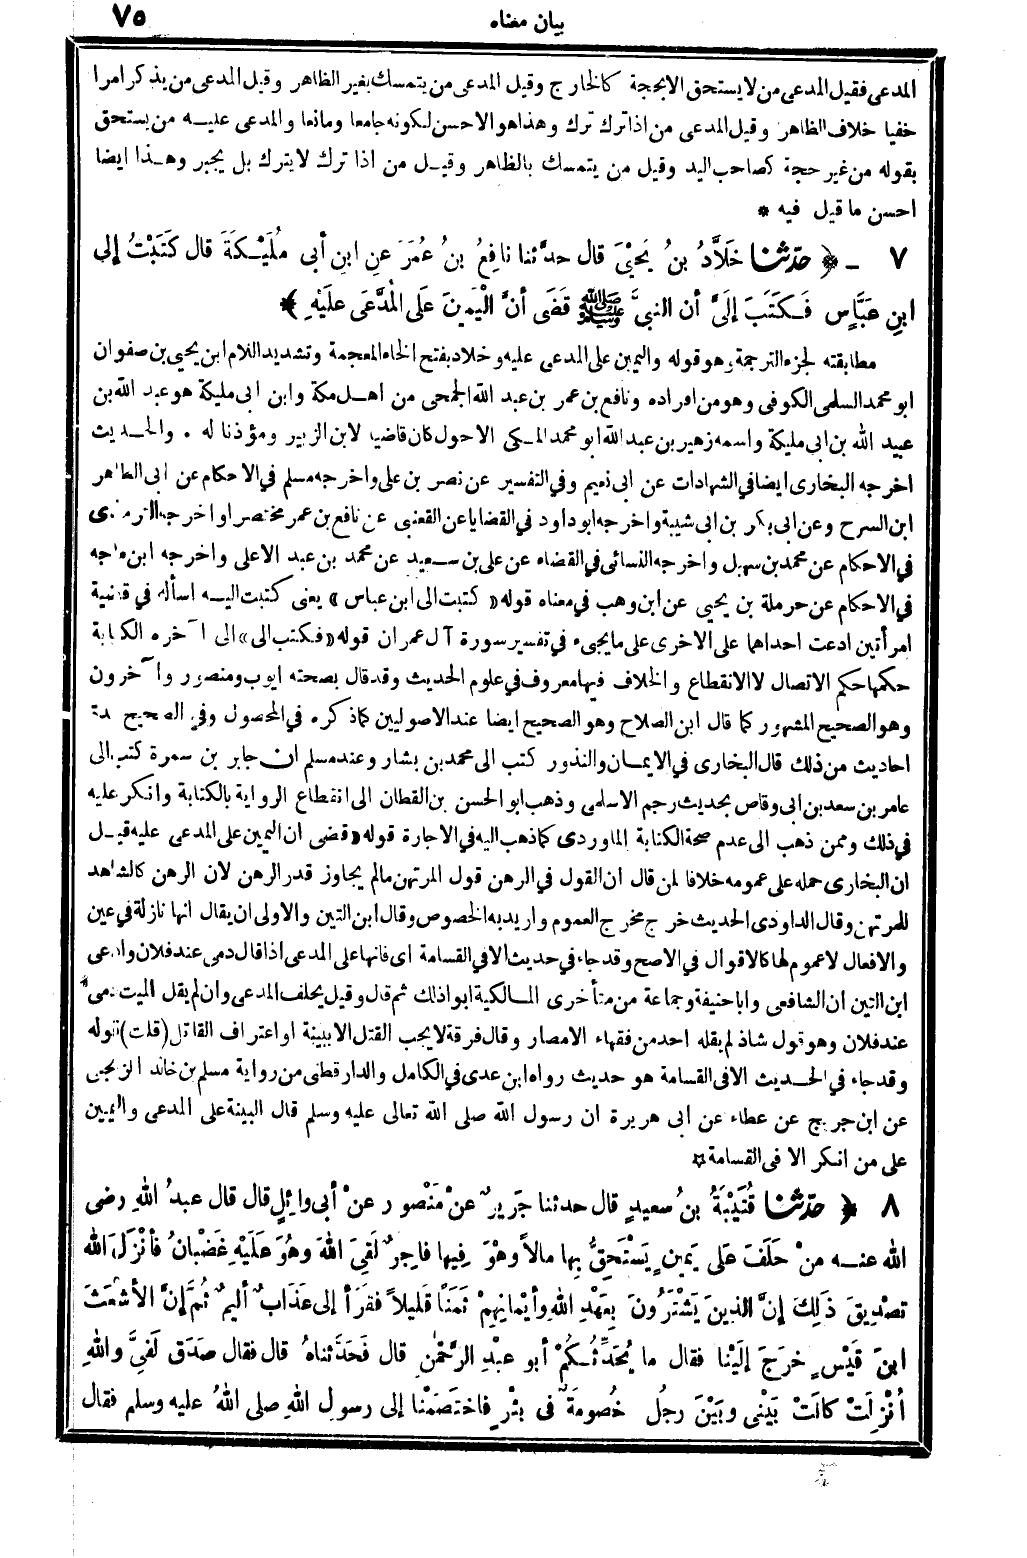 بيان معناه
٧٥
المدعى فقيل المدعى من لا يستحق الا بحجة كالخارج وقيل المدعى من يتمسك بغير الظاهر وقيل المدعى من يذكر امرا
خفيا خلاف الظاهر وقيل المدعى من اذا ترك ترك وهذا هو الاحسن لكونه جامعا ومانعا والمدعى عليه من يستحق
بقوله من غير حجة كصاحب اليد وقيل من يتمسك بالظاهر وقيل من اذا ترك لا يترك بل يجبر وهذا ايضا
احسن ما قيل فيه *
٧ ـ ﴿ حدّثنا خَلَّادُ بنُ يَحْيَى قال حدّثنا نافِعُ بنُ عُمَرَ عنِ ابنِ أبى مُلَيْكَةَ قال كَتَبْتُ إلى
ابنِ عبَّاسٍ فَكَتَبَ إلَىَّ أن النبيَّ ﷺ قَضَى أنَّ الْيَمِينَ عَلى الْمُدَّعَى علَيْهِ ﴾
مطابقته لجزء الترجمة وهو قوله واليمين على المدعى عليه وخلاد بفتح الخاء المعجمة وتشديد اللام ابن يحيى بن صفوان
ابو محمد السلمى الكوفى وهو من افراده ونافع بن عمر بن عبد الله الجمحى من اهل مكة وابن ابى مليكة هو عبد الله بن
عبيد الله بن ابى مليكة واسمه زهير بن عبد الله ابو محمد المكى الاحول كان قاضيا لابن الزبير ومؤذنا له . والحديث
اخرجه البخارى ايضا فى الشهادات عن ابى نعيم وفى التفسير عن نصر بن على واخرجه مسلم فى الاحكام عن ابى الطاهر
ابن السرح وعن ابى بكر بن ابى شيبة واخرجه ابو داود فى القضايا عن القعنبى عن نافع بن عمر مختصرا واخرجه الترمذى
فى الاحكام عن محمد بن سهل واخرجه النسائى فى القضاء عن على بن سعيد عن محمد بن عبد الاعلى واخرجه ابن ماجه
فى الاحكام عن حرملة بن يحيى عن ابن وهب فى معناه قوله «كتبت الى ابن عباس» يعنى كتبت اليه اسأله فى قضية
امرأتين ادعت احداهما على الاخرى على ما يجىء فى تفسير سورة آل عمران قوله «فكتب الى» الى آخره الكتابة
حكمها حكم الاتصال لا الانقطاع والخلاف فيها معروف فى علوم الحديث وقد قال بصحته ايوب ومنصور وآخرون
وهو الصحيح المشهور كما قال ابن الصلاح وهو الصحيح ايضا عند الاصوليين كما ذكره فى المحصول وفى الصحيح عدة
احاديث من ذلك قال البخارى فى الايمان والنذور كتب الى محمد بن بشار وعند مسلم ان جابر بن سمرة كتب الى
عامر بن سعد بن ابى وقاص بحديث رجم الاسلمى وذهب ابو الحسن بن القطان الى انقطاع الرواية بالكتابة وانكر عليه
فى ذلك وممن ذهب الى عدم صحة الكتابة الماوردى كما ذهب اليه فى الاجارة قوله «قضى ان اليمين على المدعى عليه قيل
ان البخارى حمله على عمومه خلافا لمن قال ان القول فى الرهن قول المرتهن ما لم يجاوز قدر الرهن لان الرهن كالشاهد
للمرتهن وقال الداودى الحديث خرج مخرج العموم واريد به الخصوص وقال ابن التين والاولى ان يقال انها نازلة فى عين
والافعال لا عموم لها كالاقوال فى الاصح وقد جاء فى حديث الا فى القسامة اى فانها على المدعى اذا قال دمى عند فلان وادعى
ابن التين ان الشافعى وابا حنيفة وجماعة من متأخرى المالكية ابوا ذلك ثم قال وقيل يحلف المدعى وان لم يقل الميت دمى
عند فلان وهو قول شاذ لم يقله احد من فقهاء الامصار وقال فرقة لا يجب القتل الا ببينة او اعتراف القاتل (قلت) قوله
وقد جاء فى الحديث الا فى القسامة هو حديث رواه ابن عدى فى الكامل والدارقطنى من رواية مسلم بن خالد الزنجى
عن ابن جريج عن عطاء عن ابى هريرة ان رسول الله صلى الله تعالى عليه وسلم قال البينة على المدعى واليمين
على من انكر الا فى القسامة *
٨ ﴿ حدّثنا قُتَيْبَةُ بنُ سعيدٍ قال حدثنا جَرِيرٌ عنْ مَنْصورٍ عنْ أبى وائِلٍ قال قال عبدُ اللهِ رضى
الله عنه منْ حَلَفَ عَلى يَمِينٍ يَسْتَحِقُّ بِها مالاً وهْوَ فِيها فاجِرٌ لَقىَ اللهَ وهُوَ عَلَيْهِ غَضْبانُ فأنْزَلَ الله
تصْدِيقَ ذَلِكَ إنَّ الذينَ يَشْتَرُونَ بِعَهْدِ اللهِ وأيْمانِهِمْ ثَمَنًا قَلِيلاً فقرَأ إلى عَذَابٌ أليمٌ ثُمَّ إنَّ الأشْعَثَ
ابنَ قَيْسٍ خرَجَ إلَيْنا فقال ما يُحَدِّثُكُمْ أبو عبْدِ الرَّحْمٰنِ قال فَحَدَّثناهُ قال فقال صَدَقَ لَفِىَّ واللهِ
أُنْزِلَتْ كانَتْ بَيْنِى وبَيْنَ رجُلٍ خُصُومَةٌ فى بئْرٍ فاخْتَصَمْنا إلى رسولِ اللهِ صلى اللهُ عليه وسلم فقال